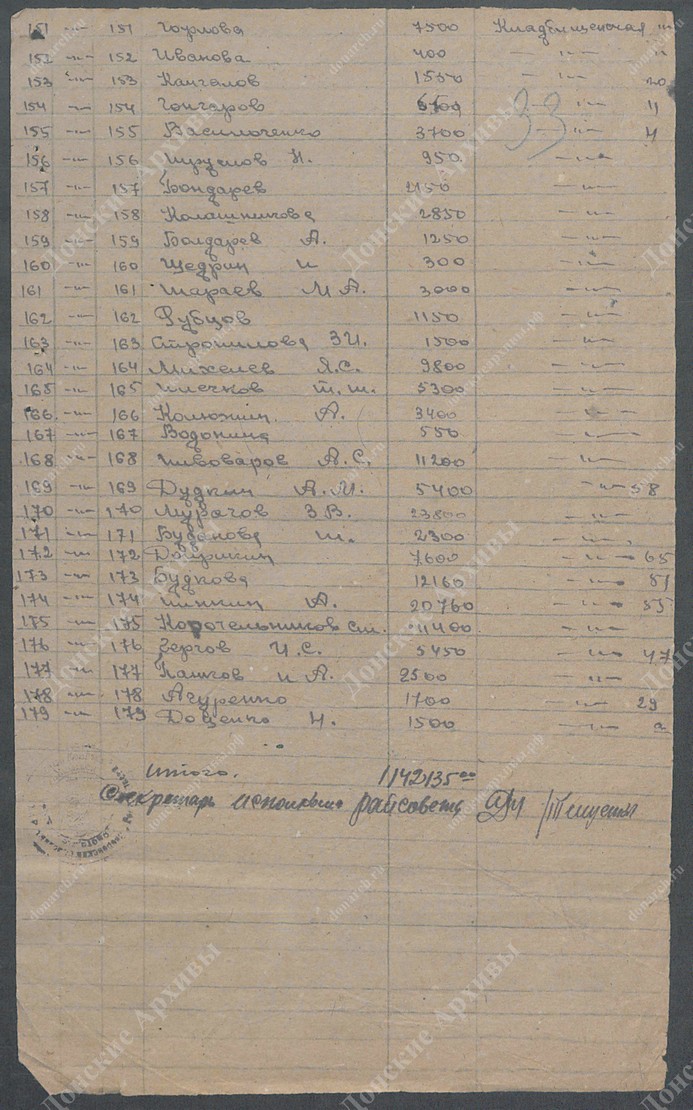 151 -"- 151 Горлова 7500 Кладбищенская
152 -"- 152 Иванова 400 -"-
153 -"- 153 Кангалов 1550 -"- 20
154 -"- 154 Гончаров -"- 11
155 -"- 155 Василюченко 3700 -"- 4
33
156 -"- 156 Н. 950 -"-
157 -"- 157 Бондарев 2150 -"-
158 -"- 158 Калашникова 2850 -"-
159 -"- 159 Болдарев А. 1250 -"-
160 -"- 160 Щедрин И 300 -"-
161 -"- 161 Шараев М А. 3000 -"-
162 -"- 162 Рубцов 1150 -"-
163 -"- 163 Стропилова З И. 1500 -"-
164 -"- 164 Михелев Я.С. 9800 -"-
165 -"- 165 5300 -"-
166 -"- 166 Калюжин А. 3400 -"-
167 -"- 167 Водопина 550 -"-
168 -"- 168 Пивоваров А.С. 11200 -"-
169 -"- 169 Дудкин А.И. 5400 -"- 58
170 -"- 170 З В. 23800 -"-
171 -"- 171 2300 -"-
172 -"- 172 7600 -"- 65
173 -"- 173 Будкова 12160 -"- 51
174 -"- 174 А. 20760 -"- 55
175 -"- 175 11400 -"-
176 -"- 176 Зергов И.С. 5450 -"- 47
177 -"- 177 Пашков И А. 2500 -"-
178 -"- 178 Ачуренко 1700 -"- 29
179 -"- 179 Доценко Н. 1500 -"-
Итого. 1142135 00
Секретарь исполкома райсовета
Донские Архивы
donarch.ru